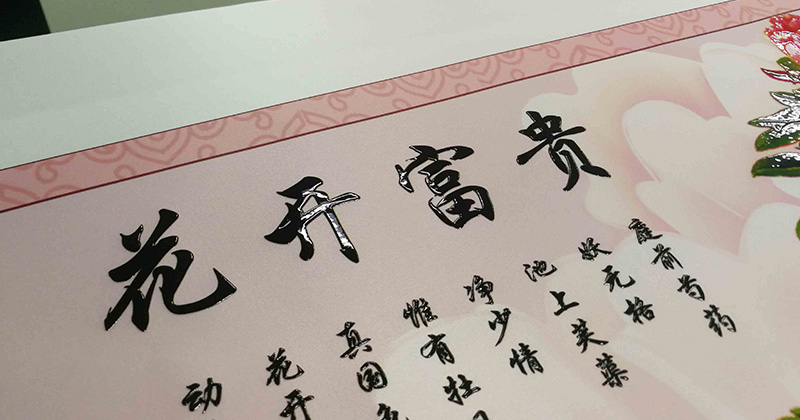 花开富贵
庭前芍药
妖无格
池上芙蕖
净少情
惟有牡
真国
花开
动